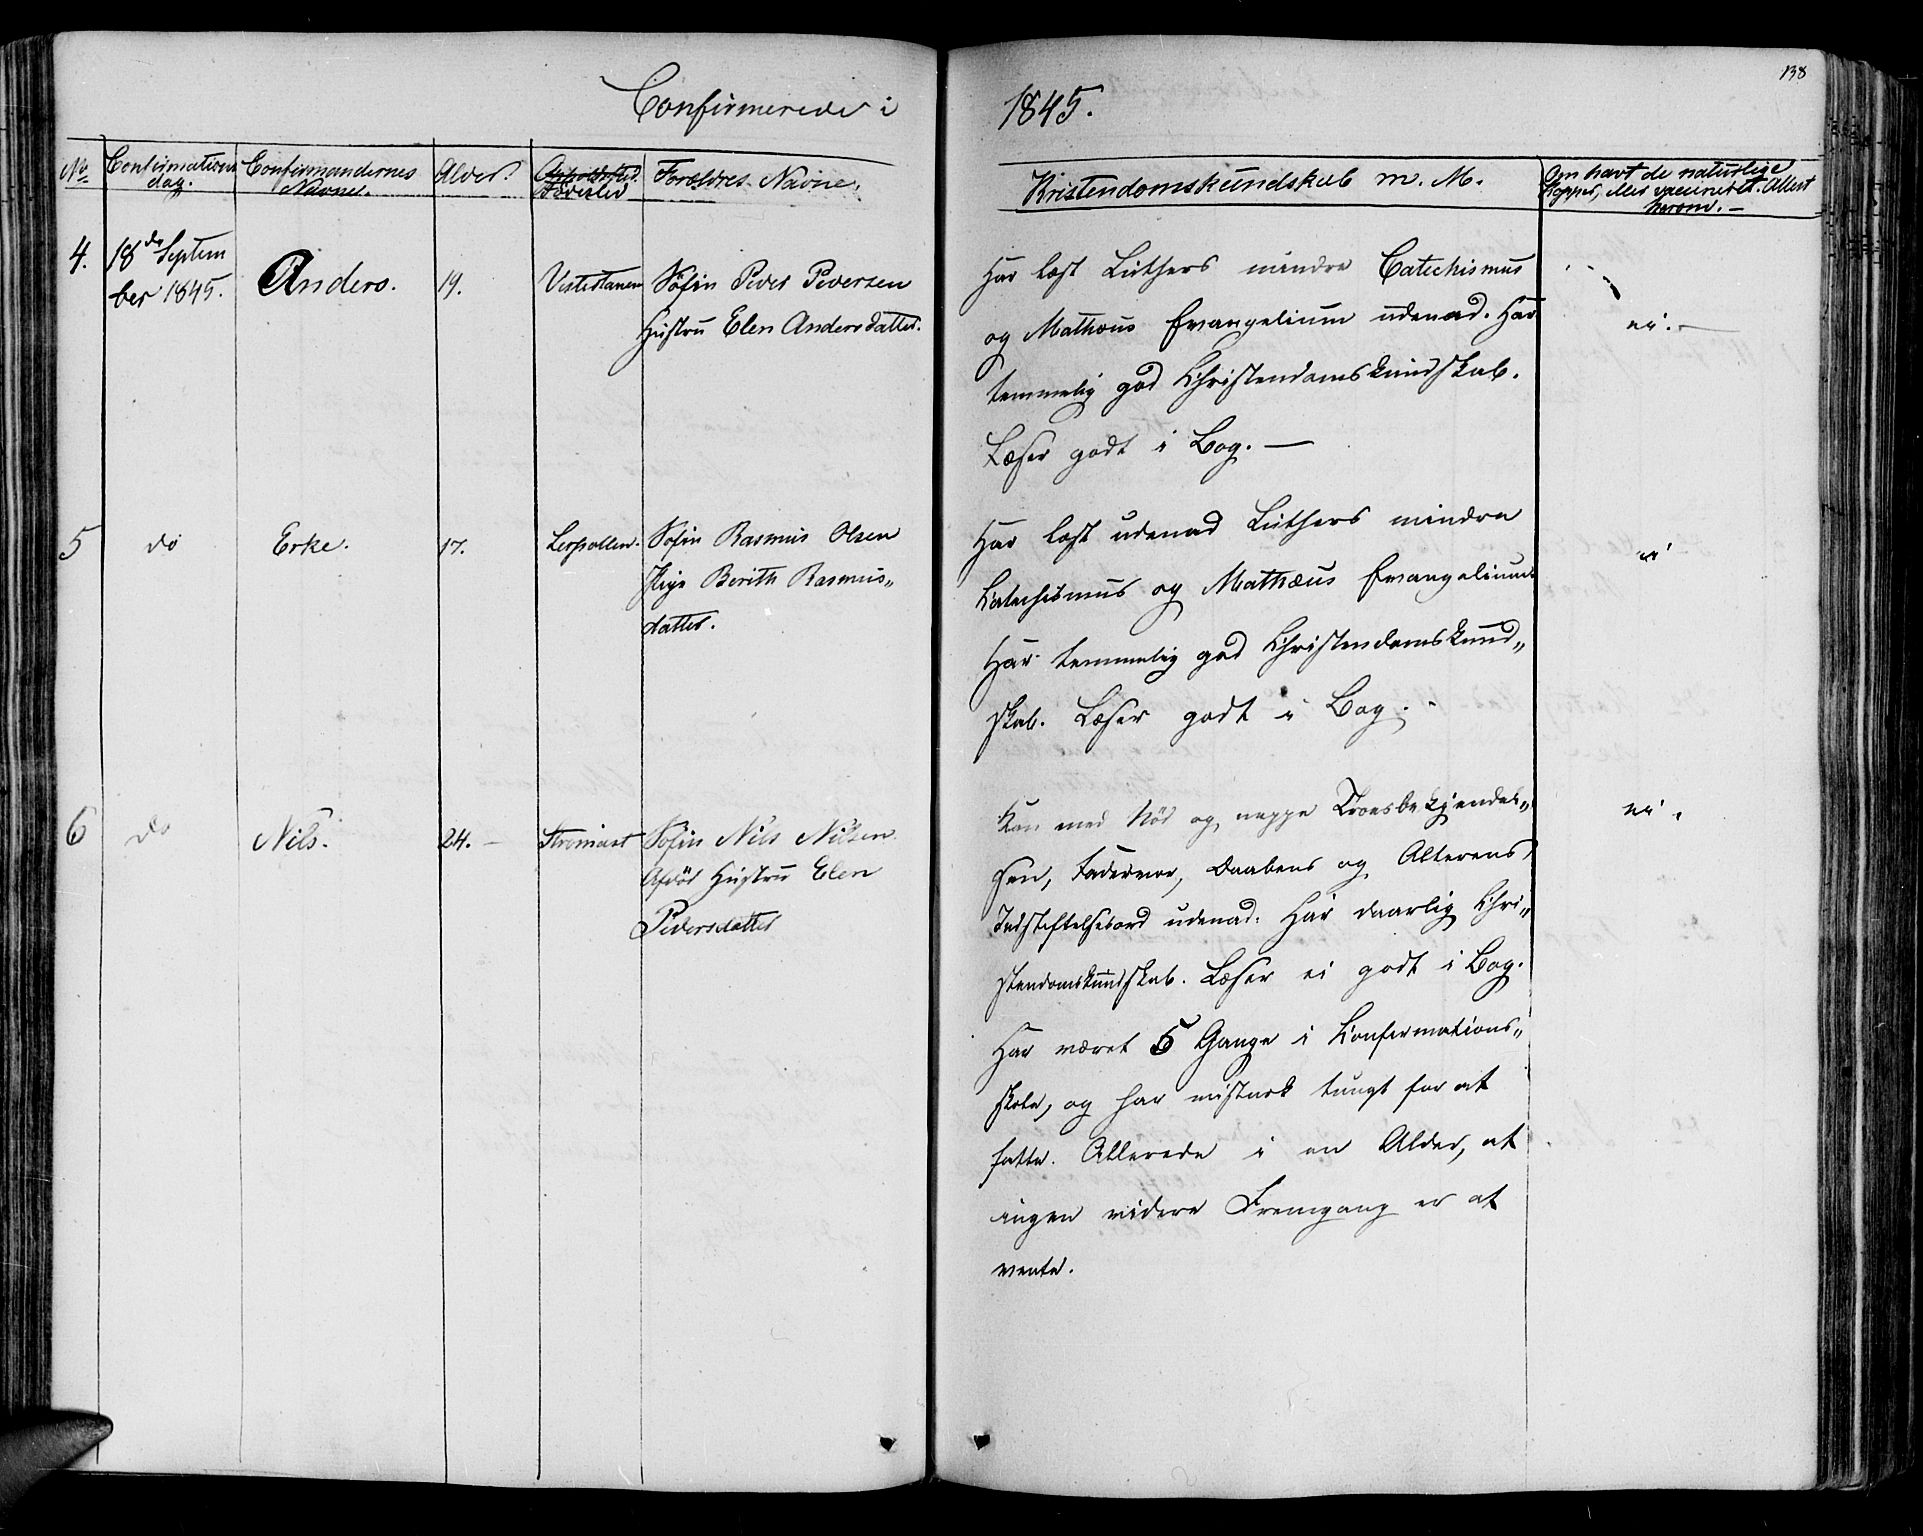 138
Confirmerede i 1845.
No
Confirmations dag.
Confirmandernes Navne.
Alder.
Fødested
Forældres Navne.
Kristendomskundskab m. M.
Om havt de naturlige
Kopper, eller vaccineret. Attest
herom. —
4.
18de Septem
ber 1845.
Anders.
19.
Vestertanen
Søfin Peder Pedersen
Hustru Elen Andersdatter.
Har læst Luthers mindre Catechismus
og Mathæus Evangelium udenad. Har
temmelig god Christendomskundskab.
Læser godt i Bog. —
ei. —
5
do
Erke.
17.
Leirpollen.
Søfin Rasmus Olsen
Pige Berith Rasmus„
datter.
Har læst udenad Luthers mindre
Katechismus og Mathæus Evangelium
Har temmelig god Christendomskund„
skab. Læser godt i Bog.
ei
6
do
Nils.
24. —
Søfin Nils Nilsen
Afdød Hustru Elen
Pedersdatter
Kan med Nöd og neppe Troesbekjendel„
sen, Fadervor, Daabens og Alterens
Indstiftelsesord udenad. Har daarlig Chri„
stendomskundskab. Læser ei godt i Bog.
Har været 5 Gange i Konfirmations„
skole, og har meget tungt for at
fatte. Allerede i en Alder, at
ingen videre Fremgang er at
vente.
ei.